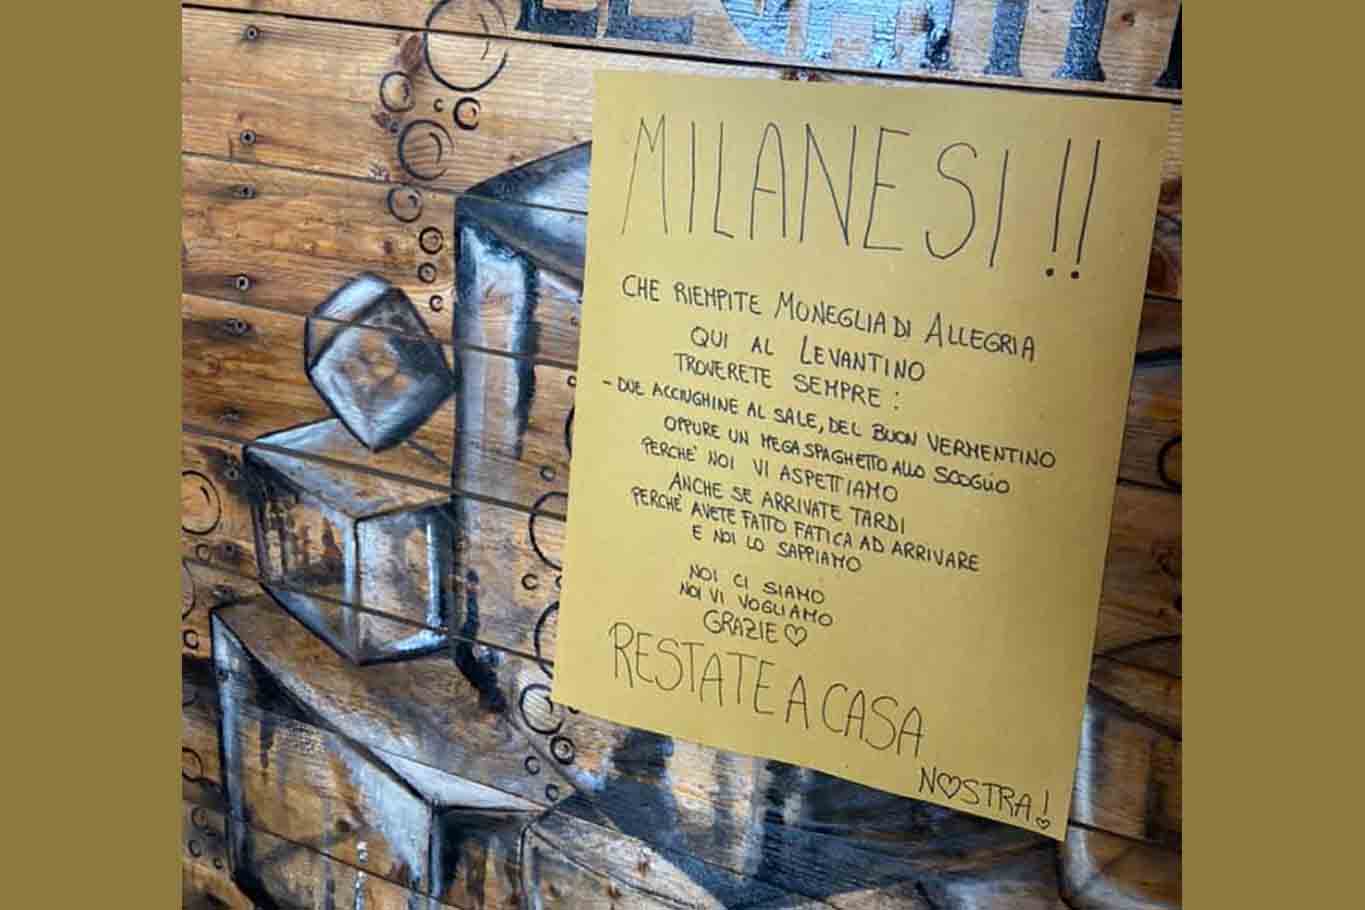 MILANESI!!
CHE RIEMPITE MONEGLIA DI ALLEGRIA
QUI AL LEVANTINO
TROVERETE SEMPRE:
- DUE ACCIUGHINE AL SALE, DEL BUON VERMENTINO
OPPURE UN MEGA SPAGHETTO ALLO SCOGLIO
PERCHE' NOI VI ASPETTIAMO
ANCHE SE ARRIVATE TARDI
PERCHE' AVETE FATTO FATICA AD ARRIVARE
E NOI LO SAPPIAMO
NOI CI SIAMO
NOI VI VOGLIAMO
GRAZIE ♡
RESTATE A CASA
N♡STRA!